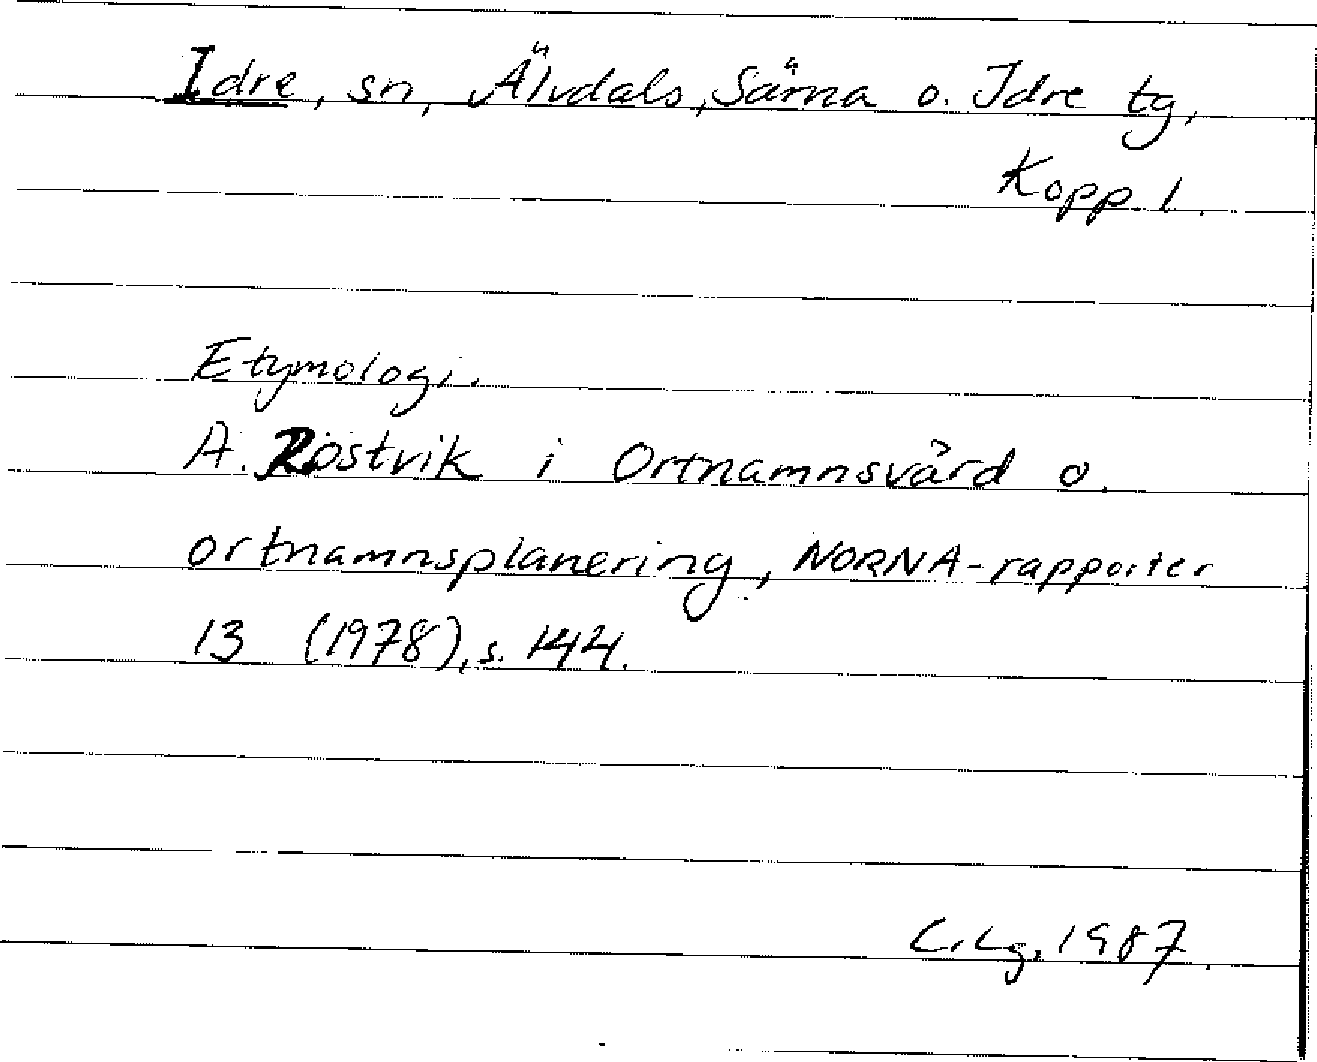 Idre, sn, Älvdals, Särna o. Idre tg,
Kopp. l.
Etymologi.
A. Rostvik i Ortnamnsvård o.
ortnamnsplanering, NORNA-rapporter
13 (1978), s. 144.
C. Lg, 1987.